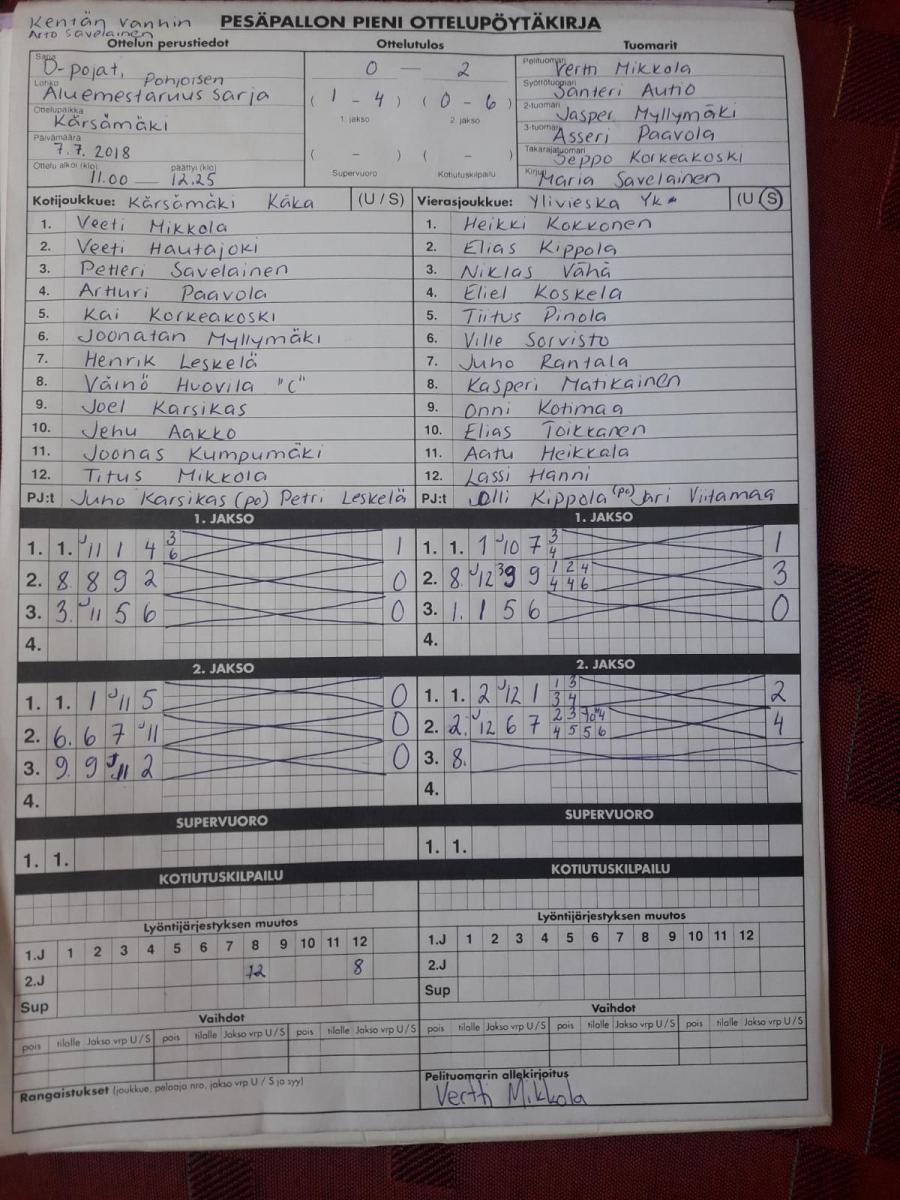 Kentän vanhin PESÄPALLON PIENI OTTELUPÖYTÄKIRJA
Arto Savelainen
Ottelun perustiedot Ottelutulos Tuomarit
Sarja D-pojat, Pohjoisen
Lohko Aluemestaruus sarja
Ottelupaikka Kärsämäki
Päivämäärä 7.7.2018
Ottelu alkoi (klo) 11.00 päättyi (klo) 12.25
0 - 2
( 1 - 4 ) ( 0 - 6 )
1. jakso 2. jakso
( - ) ( - )
Supervuoro Kotiutuskilpailu
Pelituomari Vertti Mikkola
Syöttötuomari Santeri Autio
2-tuomari Jasper Myllymäki
3-tuomari Asseri Paavola
Takarajatuomari Seppo Korkeakoski
Kirjuri Maria Savelainen
Kotijoukkue: Kärsämäki Käkä (U / S)
1. Veeti Mikkola
2. Veeti Hautajoki
3. Petteri Savelainen
4. Artturi Paavola
5. Kai Korkeakoski
6. Joonatan Myllymäki
7. Henrik Leskelä
8. Väinö Huovila "C"
9. Joel Karsikas
10. Jehu Aakko
11. Joonas Kumpumäki
12. Titus Mikkola
PJ:t Juho Karsikas (po) Petri Leskelä
Vierasjoukkue: Ylivieska Yk (U / S)
1. Heikki Kokkonen
2. Elias Kippola
3. Niklas Vähä
4. Eliel Koskela
5. Tiitus Pinola
6. Ville Sorvisto
7. Juho Rantala
8. Kasperi Matikainen
9. Onni Kotimaa
10. Elias Toikkanen
11. Aatu Heikkala
12. Lassi Hänni
PJ:t Olli Kippola (po) Jari Viitamaa
1. JAKSO
1. 1. J11 1 4 3 6 1
2. 8. 8 9 2 0
3. 3. J11 5 6 0
4.
1. JAKSO
1. 1. 1 J10 7 3 4 1
2. 8. J12 39 9 1 2 4 4 4 6 3
3. 1. 1 5 6 0
4.
2. JAKSO
1. 1. 1 J11 5 0
2. 6. 6 7 J11 0
3. 9. 9 J11 2 0
4.
2. JAKSO
1. 1. 2 J12 1 1 3 3 4 2
2. 2. J12 6 7 2 3 4 5 5 6 4
3. 8.
4.
SUPERVUORO
1. 1.
SUPERVUORO
1. 1.
KOTIUTUSKILPAILU
KOTIUTUSKILPAILU
Lyöntijärjestyksen muutos
1.J 1 2 3 4 5 6 7 8 9 10 11 12
2.J 12 8
Sup
Lyöntijärjestyksen muutos
1.J 1 2 3 4 5 6 7 8 9 10 11 12
2.J
Sup
Vaihdot
pois tilalle Jakso vrp U / S pois tilalle Jakso vrp U / S pois tilalle Jakso vrp U / S
Vaihdot
pois tilalle Jakso vrp U / S pois tilalle Jakso vrp U / S pois tilalle Jakso vrp U / S
Rangaistukset (joukkue, pelaaja nro, jakso vrp U / S ja syy)
Pelituomarin allekirjoitus
Vertti Mikkola